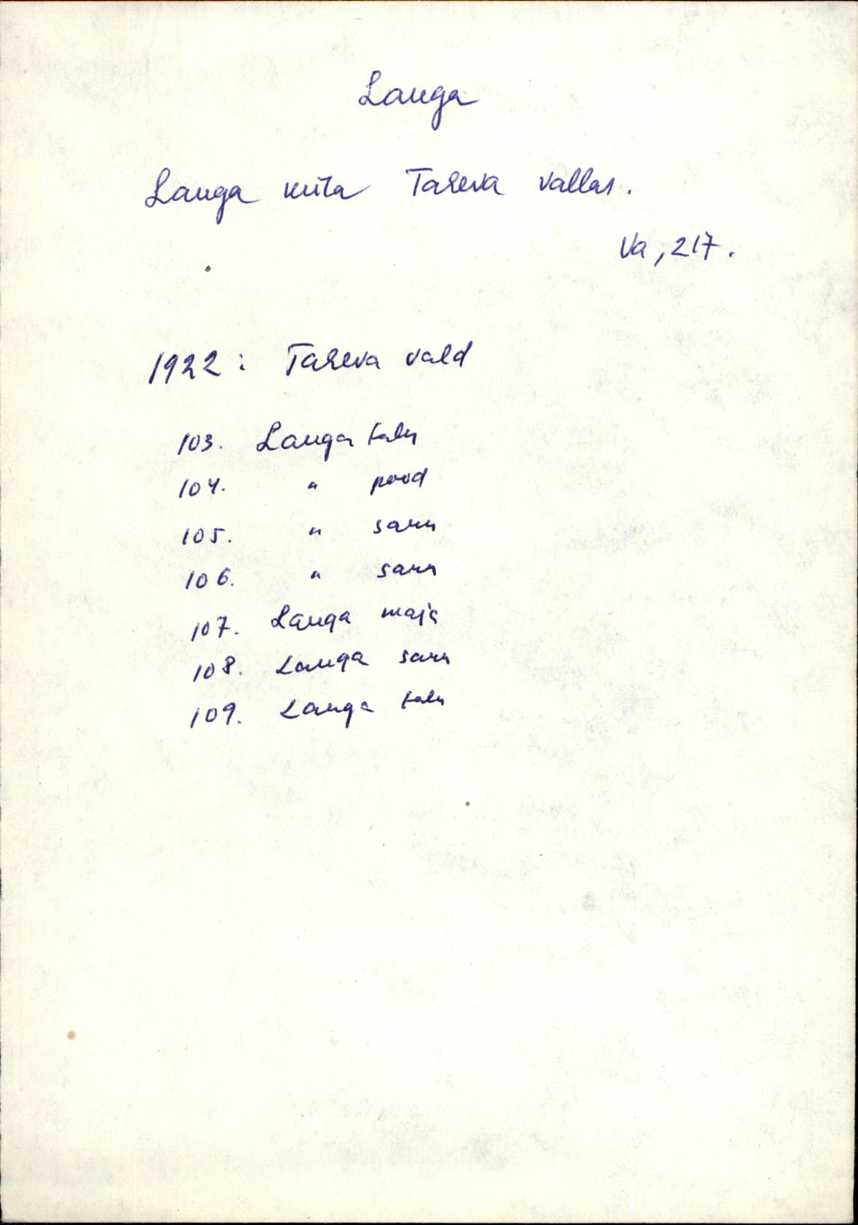 Lauga
Lauga küla Taheva vallas.
Va, 217.
1922: Taheva vald
103. Lauga talu
104. " pood
105. " saun
106. " saun
107. Lauga maja
108. Lauga saun
109. Lauga talu